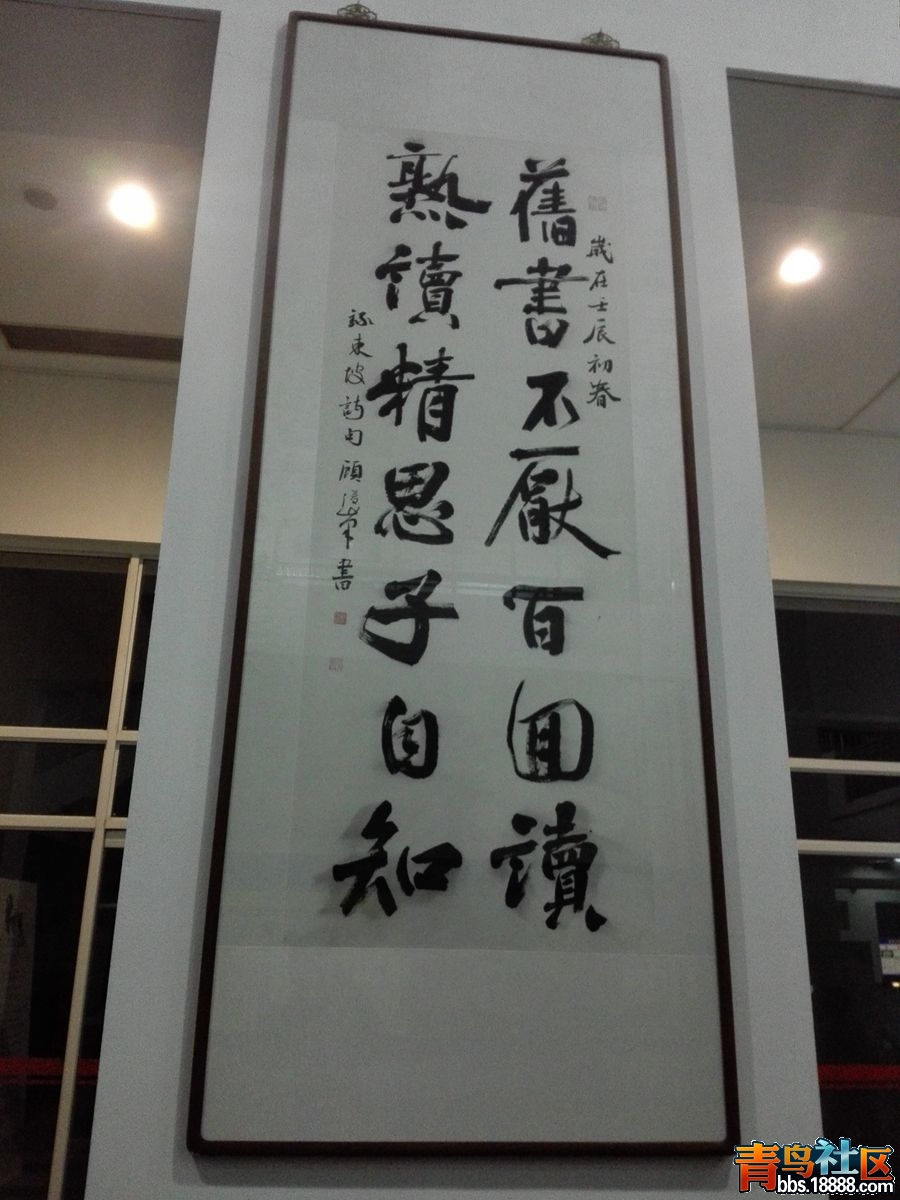 歲在壬辰初春
舊書不厭百回讀
熟讀精思子自知
錄東坡詩句 顧
書
青鸟社区
bbs.18888.com